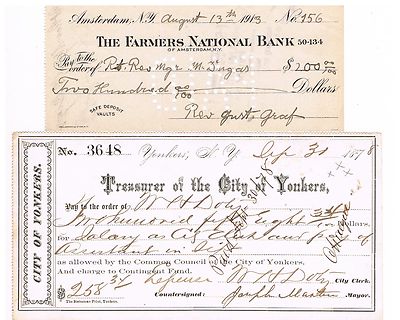 Amsterdam, N.Y. August 13th 1913 No. 156
THE FARMERS NATIONAL BANK 50-434
OF AMSTERDAM, N.Y.
Pay to the
order of Rt. Rev Mgr. $200 00/100
Two Hundred 00/100 Dollars
SAFE DEPOSIT
VAULTS
Rev Gust. Graf
CITY OF YONKERS.
No. 3648 Yonkers, N.Y. 1878
Treasurer of the City of Yonkers,
Pay to the order of W H Doty
Two hundred fifty eight 34/ Dollars,
for Salary as City Clerk and
Assistant
as allowed by the Common Council of the City of Yonkers.
And charge to Contingent Fund.
W H Doty City Clerk.
$ 258 34/ Countersigned: Joseph Masten Mayor.
The Statesman Print, Yonkers.